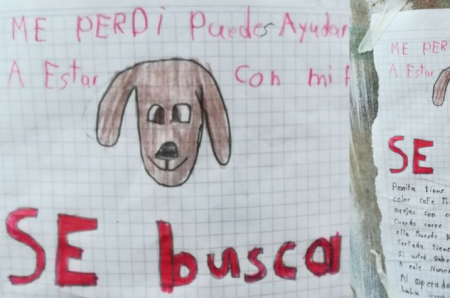 ME PERDí Puedes Ayudar
A Estar Con mi f
SE busca
ME PERD
A Estar
SE
Perrita tiene
color cafe
orejas con
cuando corre
ella Muerde
cortada tiene
Si usted sabe
A este Numero